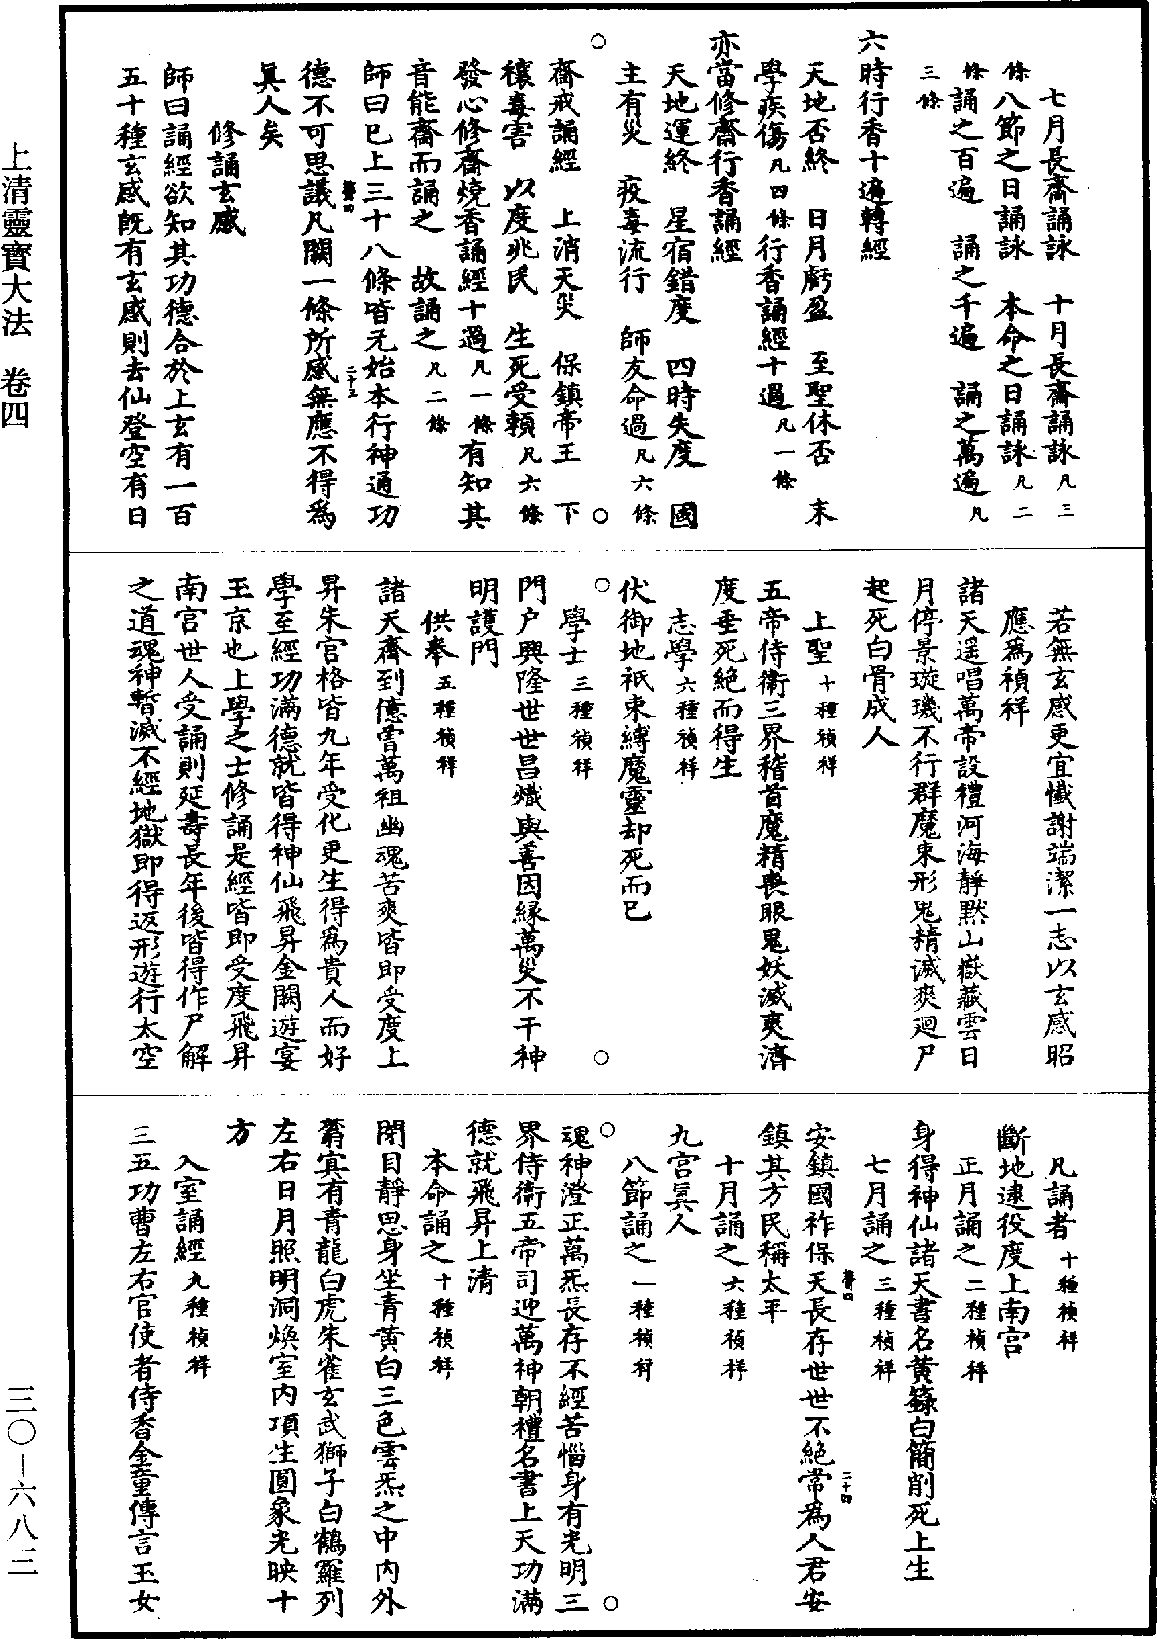 上清靈寶大法　卷四
三〇—六八三
七月長齋誦詠　十月長齋誦詠凡三
條八節之日誦詠　本命之日誦詠凡二
條誦之百遍　誦之千遍　誦之萬遍凡
三條
六時行香十遍轉經
天地否終　日月虧盈　至聖休否　末
學疾傷凡四條行香誦經十過凡一條
亦當修齋行香誦經
天地運終　星宿錯度　四時失度　國
主有災　疫毒流行　師友命過凡六條
齋戒誦經　上消天災　保鎮帝王　下
禳毒害　以度兆民　生死受賴凡六條
發心修齋燒香誦經十過凡一條有知其
音能齋而誦之　故誦之凡二條
師曰已上三十八條皆元始本行神通功
德不可思議凡闕一條所感無應不得爲
眞人矣
修誦玄感
師曰誦經欲知其功德合於上玄有一百
五十種玄感既有玄感則去仙登空有日
若無玄感更宜懺謝端潔一志以玄感昭
應爲禎祥
諸天遥唱萬帝設禮河海靜黙山嶽藏雲日
月停景璇璣不行群魔束形鬼精滅爽迴尸
起死白骨成人
上聖十種禎祥
五帝侍衛三界稽首魔精喪眼鬼妖滅爽濟
度垂死絶而得生
志學六種禎祥
伏御地祇束縛魔靈却死而已
學士三種禎祥
門户興隆世世昌熾與善因緣萬災不干神
明護門
供奉五種禎祥
諸天齋到億曽萬祖幽魂苦爽皆即受度上
昇朱宫格皆九年受化更生得爲貴人而好
學至經功滿德就皆得神仙飛昇金闕遊宴
玉京也上學之士修誦是經皆即受度飛昇
南宫世人受誦則延壽長年後皆得作尸解
之道魂神暫滅不經地獄即得返形遊行太空
凡誦者十種禎祥
斷地逮役度上南宫
正月誦之二種禎祥
身得神仙諸天書名黄籙白簡削死上生
七月誦之三種禎祥
安鎮國祚保天長存世世不絶常爲人君安
鎮其方民稱太平
十月誦之六種禎祥
九宫眞人
八節誦之一種禎祥
魂神澄正萬炁長存不經苦惱身有光明三
界侍衛五帝司迎萬神朝禮名書上天功滿
德就飛昇上清
本命誦之十種禎祥
閉目靜思身坐青黄白三色雲炁之中内外
蓊冥有青龍白虎朱雀玄武獅子白鶴羅列
左右日月照明洞煥室内項生圓象光映十
方
入室誦經九種禎祥
三五功曹左右官使者侍香金童傳言玉女